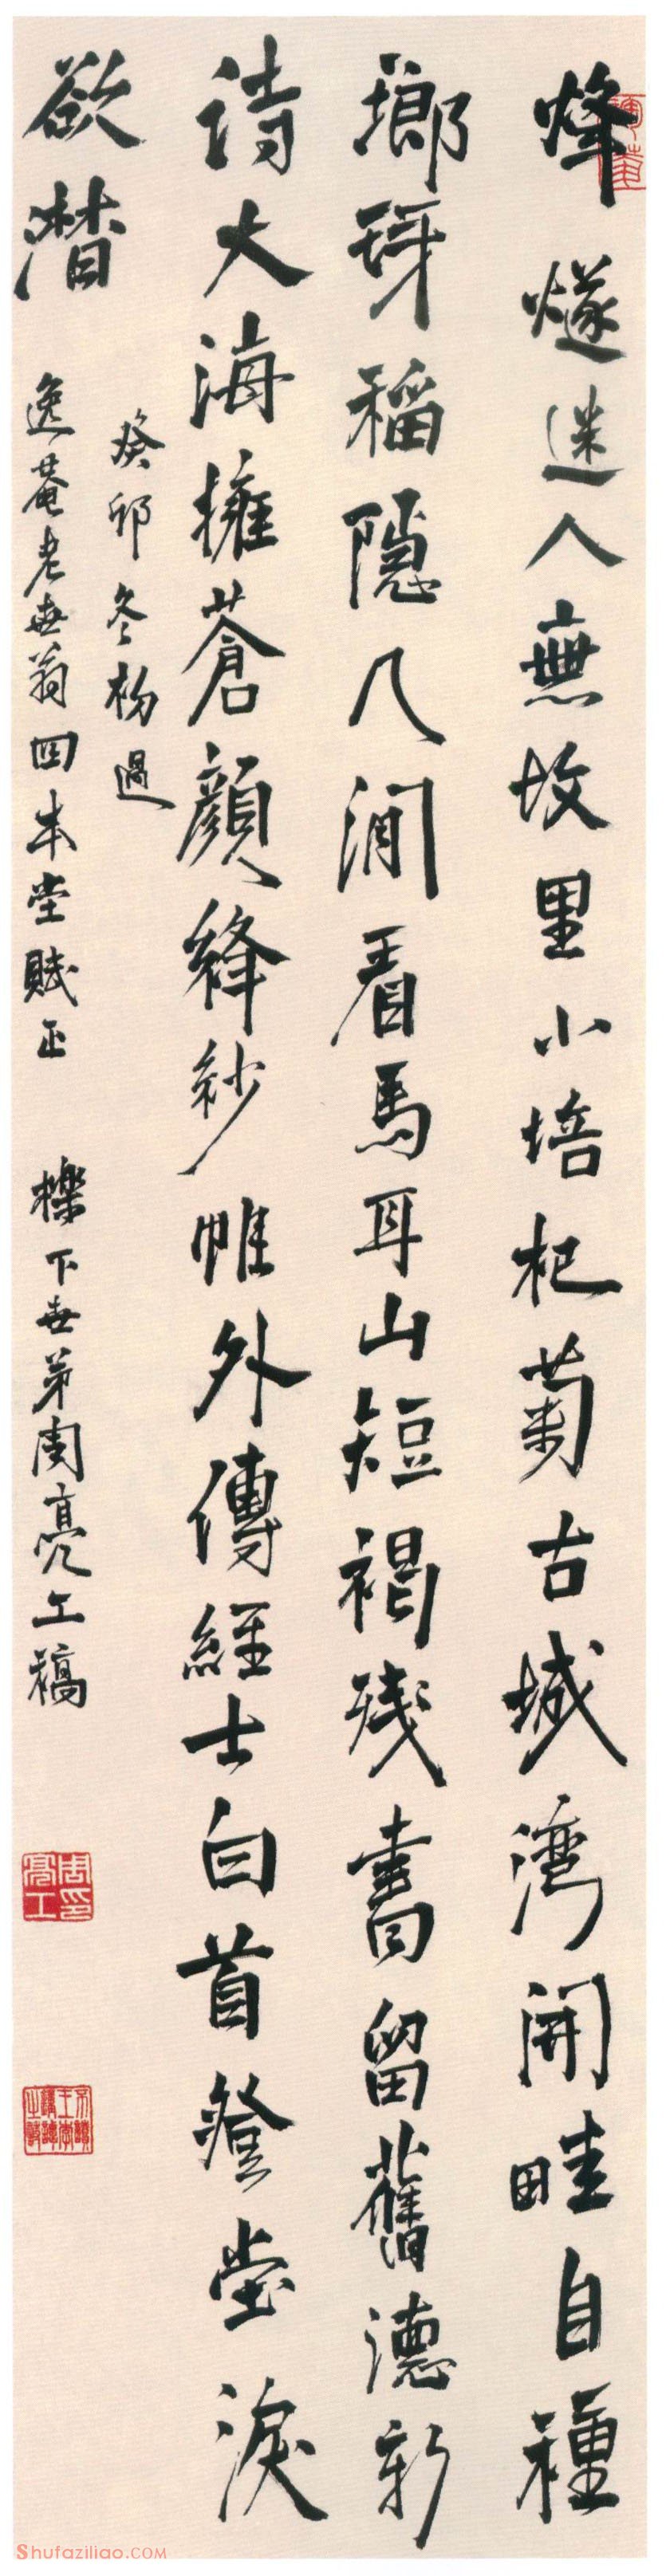 烽燧迷人無故里小培杞菊古城灣開畦自種
瑯琊稻隱几閒看馬耳山短褐殘書留舊德新
詩大海擁蒼顏絳紗帷外傳經士白首登堂淚
欲潸
癸卯冬杪過
逸菴老世翁四本堂賦正 櫟下世弟周亮工稿
周亮工印
Shufaziliao.COM